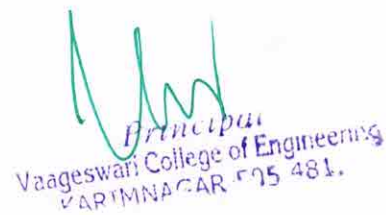 Principal
Vaageswari College of Engineering
KARIMNAGAR-505 481.